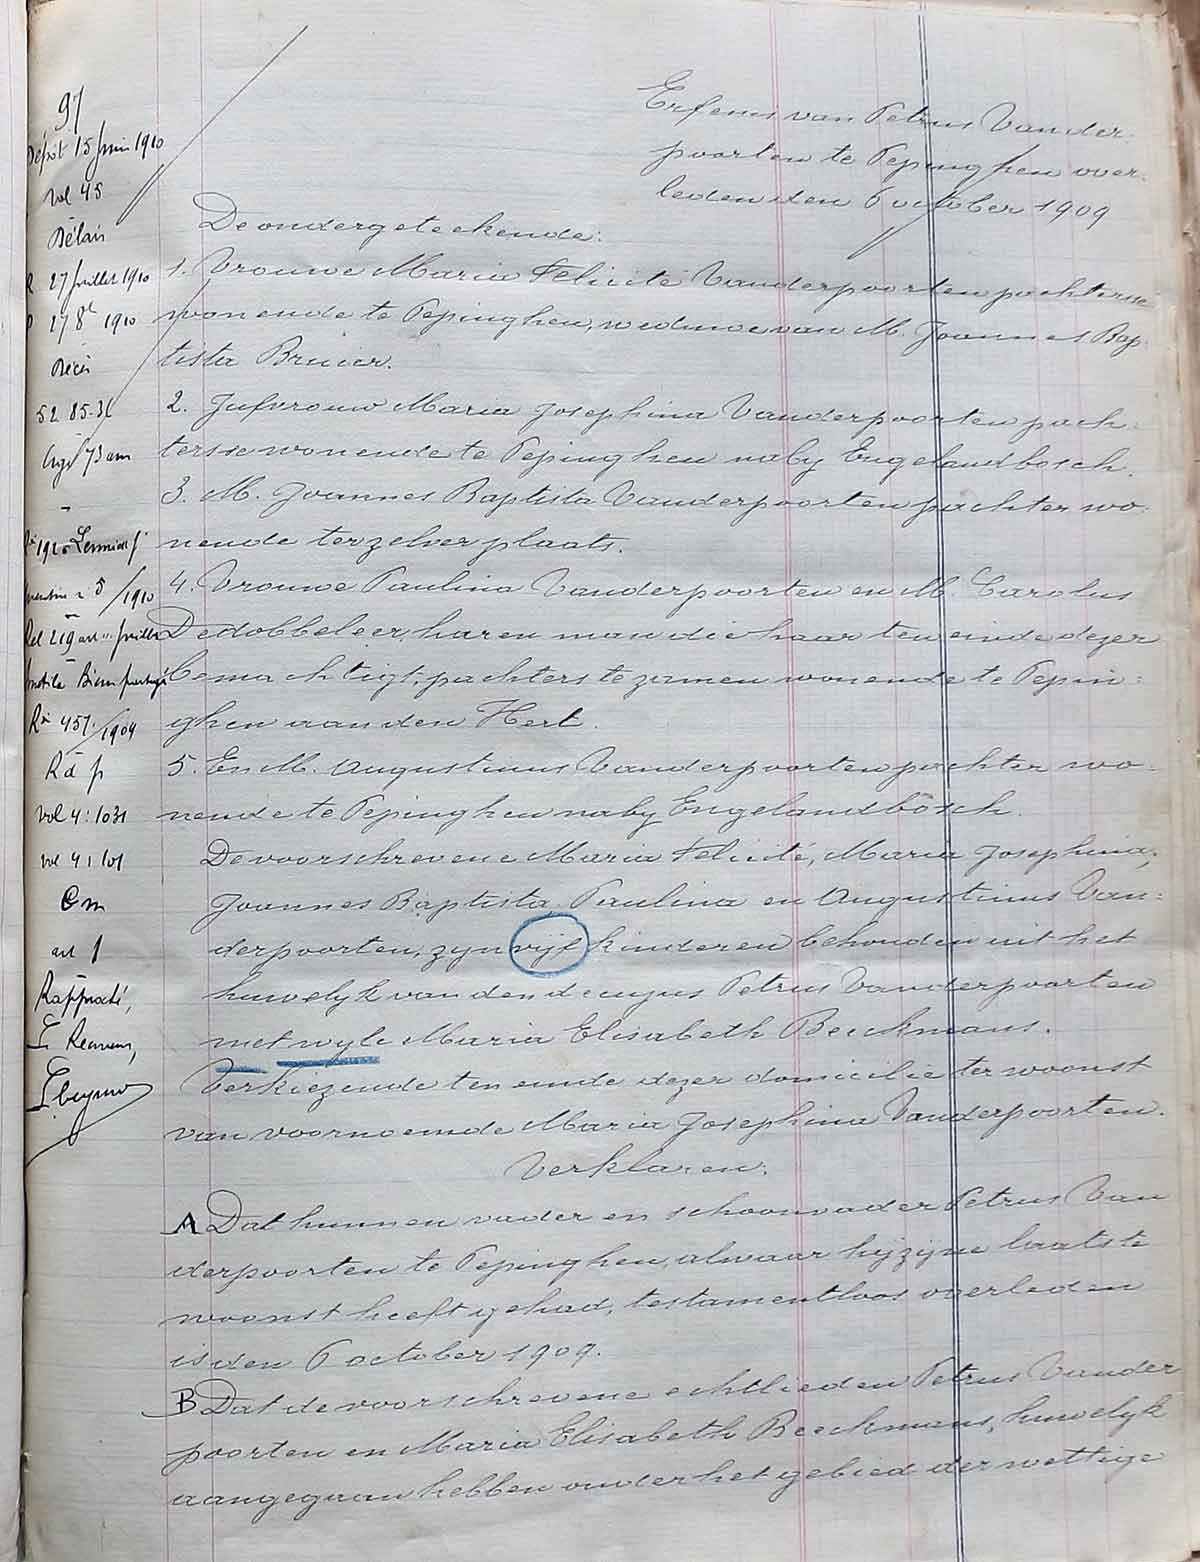 97
Dépôt 15 Juin 1910
Vol 45
Délais
27 Juillet 1910
27 8e 1910
Décès
52 85-36
Agé 73 ans
1910
Vol 4: 1031
Vol 4: 101
Cm
art 1
Erfenis van Petrus Vander-
poorten te Pepinghen over-
leden den 6 october 1909
De ondergeteekende:
1. Vrouwe Maria Felicité Vanderpoorten pachtersse
wonende te Pepinghen, weduwe van M. Joannes Bap-
tista Bruier.
2. Jufvrouw Maria Josephina Vanderpoorten pach-
tersse wonende te Pepinghen naby Engelandbosch.
3. M. Joannes Baptista Vanderpoorten pachter wo-
nende terzelver plaats.
4. Vrouwe Paulina Vanderpoorten en M. Carolus
Dedobbeleer, haren man die haar ten einde dezer
bemachtigt, pachters te zamen wonende te Pepin-
ghen aan den Hert.
5. En M. Augustinus Vanderpoorten pachter wo-
nende te Pepinghen naby Engelandbosch.
De voorschrevene Maria Felicité, Maria Josephina,
Joannes Baptista, Paulina en Augustinus Van-
derpoorten, zyn vijf kinderen behouden uit het
huwelyk van den decujus Petrus Vanderpoorten
met wyle Maria Elisabeth Beeckmans.
Verkiezende ten einde dezer domicilie ter woonst
van voornoemde Maria Josephina Vanderpoorten.
Verklaren:
A Dat hunnen vader en schoonvader Petrus Van
derpoorten te Pepinghen, alwaar hij zijne laatste
woonst heeft gehad, testamentloos overleden
is den 6 october 1909.
B Dat de voorschrevene echtlieden Petrus Vander
poorten en Maria Elisabeth Beeckmans, huwelyk
aangegaan hebben onder het gebied der wettige